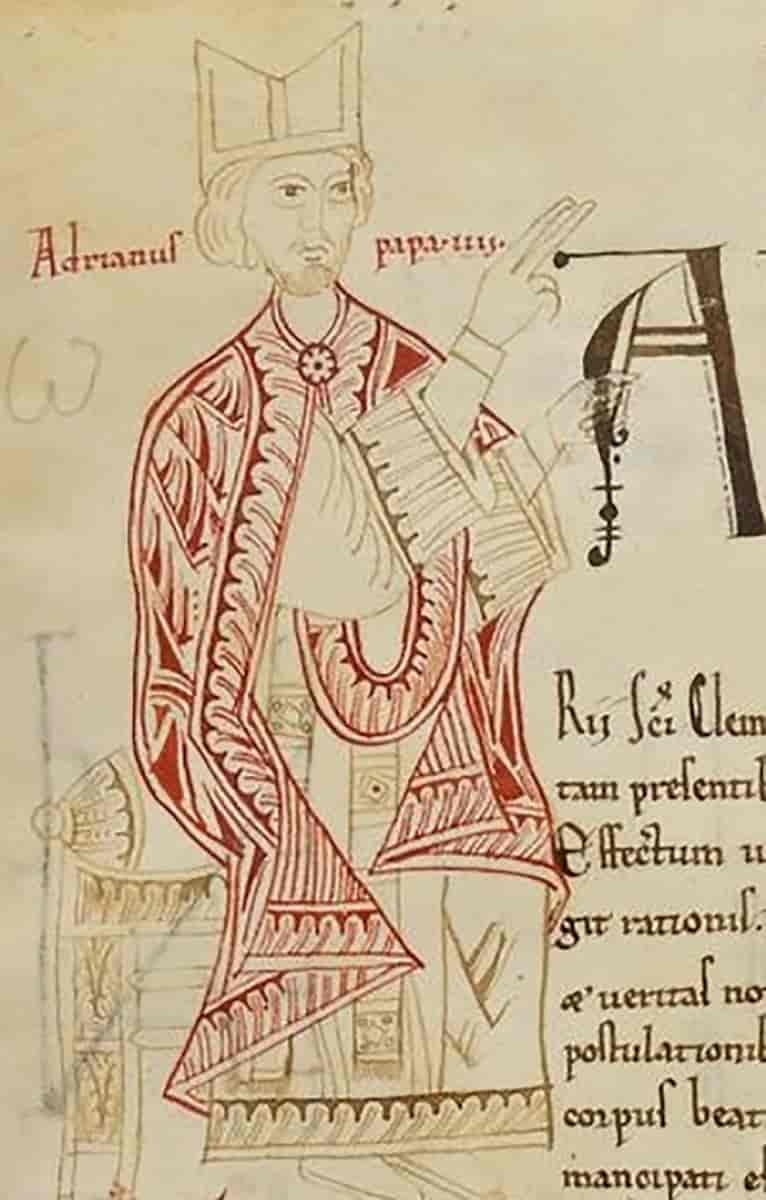 Adrianus papa·iiij.
A
Rij Sc̄i Clem
tam presentib
Effectum u
git rationis.
æ ueritas no
postulationib
corpus beat
mancipari et